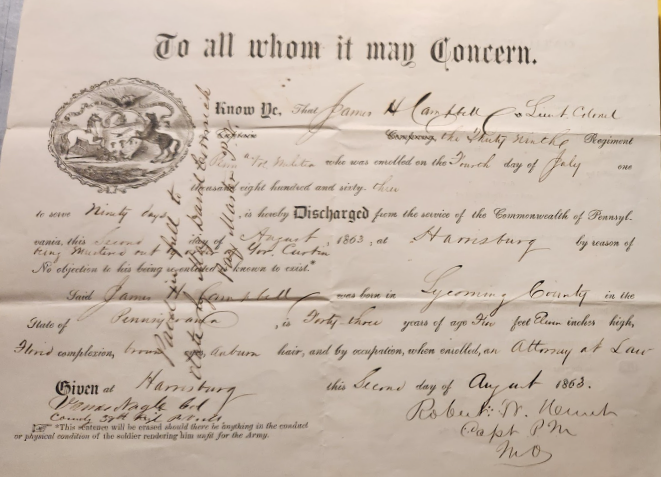 To all whom it may Concern.
Know Ye. That James H Campbell a Lieut Colonel
Captain Company the Thirty ninth Regiment
Penna Vol Militia who was enrolled on the Fourth day of July one
thousand eight hundred and sixty three
to serve Ninety days is hereby Discharged from the service of the Commonwealth of Pennsyl-
vania, this Second day of August, 1863, at Harrisburg by reason of
being Mustered out by order of Gov. Curtin
No objection to his being re-enlisted is known to exist.*
Said James H Campbell was born in Lycoming County in the
State of Pennsylvania, is Forty-three years of age Five feet Eleven inches high,
Florid complexion, brown eyes, auburn hair, and by occupation, when enrolled, an Attorney at Law
Given at Harrisburg this Second day of August 1863.
James Nagle Col
Comdg 39th Regt
Robert W.
Capt P M
M O
*This sentence will be erased should there be anything in the conduct
or physical condition of the soldier rendering him unfit for the Army.
Paid in full to
date by Maj David
Pay Master